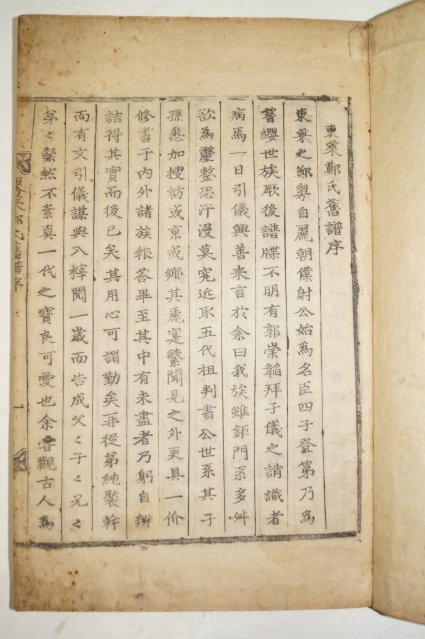 東萊鄭氏舊譜序
東萊之鄭粤自麗朝僕射公始爲名臣四子登第乃爲
簪纓世族厥後譜牒不明有郭崇韜拜子儀之誚識者
病焉一日引儀興善来言於余曰我族雖鉅門系多舛
欲爲釐整恐汗漫莫究近取五代祖判書公世系其子
孫悉加搜訪或京或鄕其麗寔繁聞見之外更具一价
修書于內外諸族報答畢至其中有未盡者乃躬自辨
詰得其實而後已矣其用心可謂勤矣再從弟純裝幹
而有文引儀謀與入梓閱一歲而告成父〻子〻兄〻
弟〻粲然不紊真一代之寶良可愛也余嘗觀古人爲
東萊鄭氏舊譜序
一